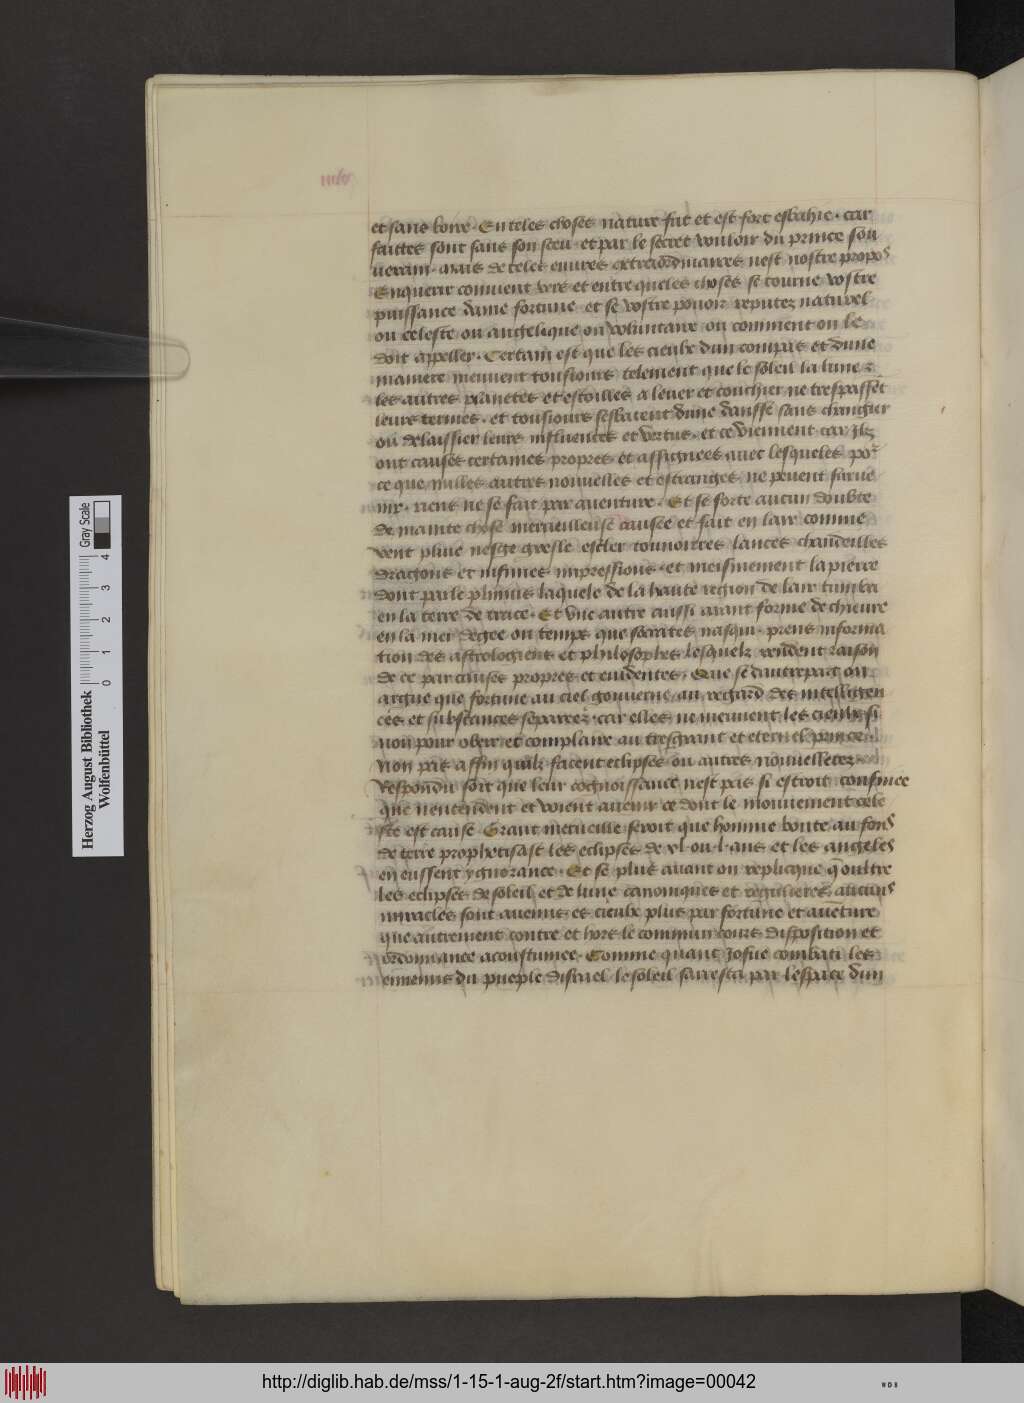 et sans boire. En teles choses nature fut et est fort esbahie. car
faittes sont sans son sceu. et par le secret vouloir du prince sou
uerain. Mais de teles euures extraordinaires nest nostre propos
Enquerir conuient vers et entre queles choses se tourne vostre
puissance dame fortune et se vostre pouoir reputez naturel
ou celeste ou angelique ou voluntaire ou comment on le
doit appeller. Certain est que les cieulx dun compas et dune
maniere meuuent tousiours telement que le soleil la lune z
les autres planetes et estoilles a leuer et couchier ne trespassẽt
leurs termes. et tousiours sesbatent dune dansse sans changier
ou delaissier leurs influences et vertus. et ce viennent car Ilz
ont causes certaines propres et assignees auec lesqueles poʳ
ce que nulles autres nouuelles et estranges ne peuent surue
nir. riens ne se fait par auenture. Et se forte aucun doubte
de mainte chose merueilleuse causee et fait en lair comme
vent pluie nesge gresle escler tonnoirres lances chandeilles
dragons et infinies impressions. et meismement la pierre
dont parle plinius laquele de la haute region de lair tumba
en la terre de trace. Et vne autre aussi aiant forme de chieure
en la mer degee ou temps que socrates nasqui. prens informa
tion des astrologiens et philosophes lesquelz rendent raison
de ce par causes propres et euidentes. Que se dautrepart on
argue que fortune au ciel gouuerne au regard des intelligen
ces et substances separees. car elles ne meuuent les cieulx si
non pour obeir et complaire au tresgrant et eternel prince.
Non pas affin quilz facent eclipses ou autres nouuelletez
Respondu soit que leur cognoissance nest pas si estroit confinee
que nentendent et voient auenir ce dont le mouuement cele
ste est cause. Grant merueille seroit que homme boute au fons
de terre prophetisast les eclipses de xl. ou .l. ans et les angeles
en eussent ygnorance. Et se plus auant on replicque q̃ oultre
les eclipses de soleil et de lune canoniques et regulieres aucuns
miracles sont auenus es cieulx plus par fortune et auẽture
que autrement contre et hors le commun cours disposition et
ordonnance acoustumee. Comme quant Josue combati les
ennemis du pueple disrael le soleil sarresta par lespace dun
Herzog August Bibliothek
Wolfenbüttel
0 1 2 3 4
Gray Scale
http://diglib.hab.de/mss/1-15-1-aug-2f/start.htm?image=00042